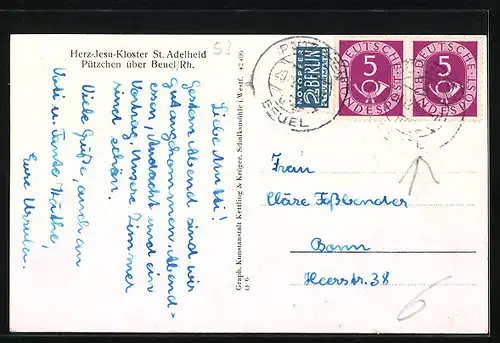 Herz-Jesu-Kloster St. Adelheid
Pützchen über Beuel/Rh.
52
Liebe Mutti!
Gestern Abend sind wir
gut angekommen. Abend-
essen, Andacht und ein
Vortrag. Unsere Zimmer
sind schön.
Viele Grüße, auch an
Vati u. Tante Käthe,
Eure Ursula.
Graph. Kunstanstalt Kettling & Krüger, Schalksmühle i. Westf.
O 6
BEUEL
NOTOPFER
2 BERLIN
DEUTSCHE
5
BUNDESPOST
DEUTSCHE
5
BUNDESPOST
Frau
Cläre Faßbender
Bonn
Heerstr. 38
6